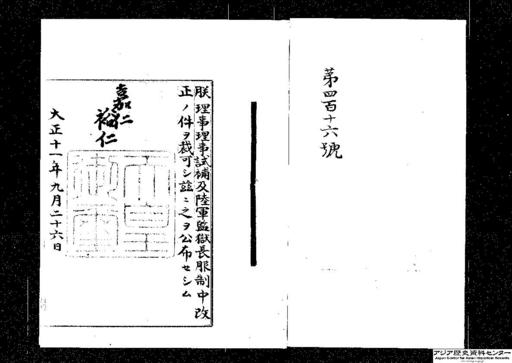 第四百十六號
朕理事理事試補及陸軍監獄長服制中改
正ノ件ヲ裁可シ茲ニ之ヲ公布セシム
嘉仁
裕仁
天皇御璽
大正十一年九月二十六日
アジア歴史資料センター
Japan Center for Asian Historical Records